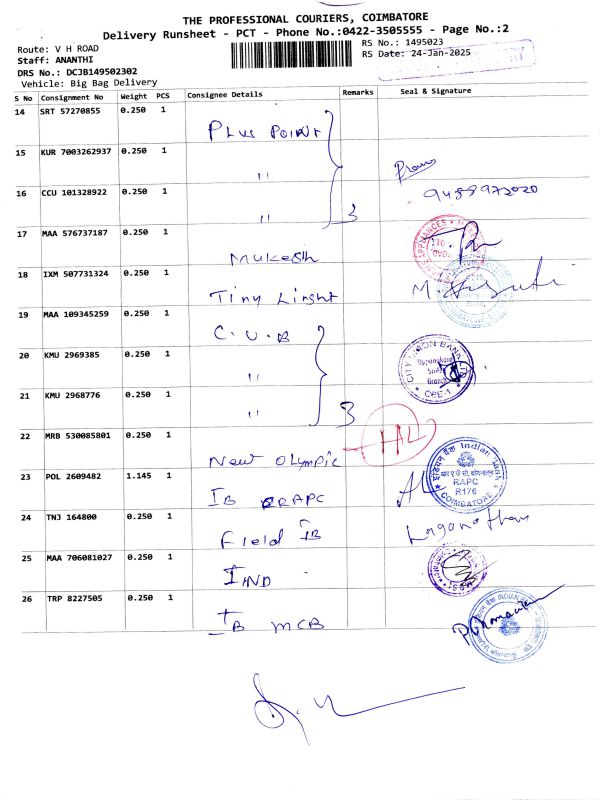 THE PROFESSIONAL COURIERS, COIMBATORE
Delivery Runsheet - PCT - Phone No.:0422-3505555 - Page No.:2
Route: V H ROAD
RS No.: 1495023
Staff: ANANTHI
RS Date: 24-Jan-2025
DRS No.: DCJB149502302
Vehicle: Big Bag Delivery
S No Consignment No Weight PCS Consignee Details Remarks Seal & Signature
14 SRT 57270855 0.250 1 Plus Point
15 KUR 7003262937 0.250 1 "
16 CCU 101328922 0.250 1 " 3 9489972020
17 MAA 576737187 0.250 1 Mukesh
18 IXM 507731324 0.250 1 Tiny Linght
19 MAA 109345259 0.250 1 C.U.B
20 KMU 2969385 0.250 1 " CITY UNION BANK LTD CBE-1
21 KMU 2968776 0.250 1 " 3
22 MRB 530085801 0.250 1 New Olympic
23 POL 2609482 1.145 1 IB RAPC Indian Bank RAPC R176 COIMBATORE
24 TNJ 164800 0.250 1 Field IB
25 MAA 706081027 0.250 1 IND
26 TRP 8227505 0.250 1 IB MCB